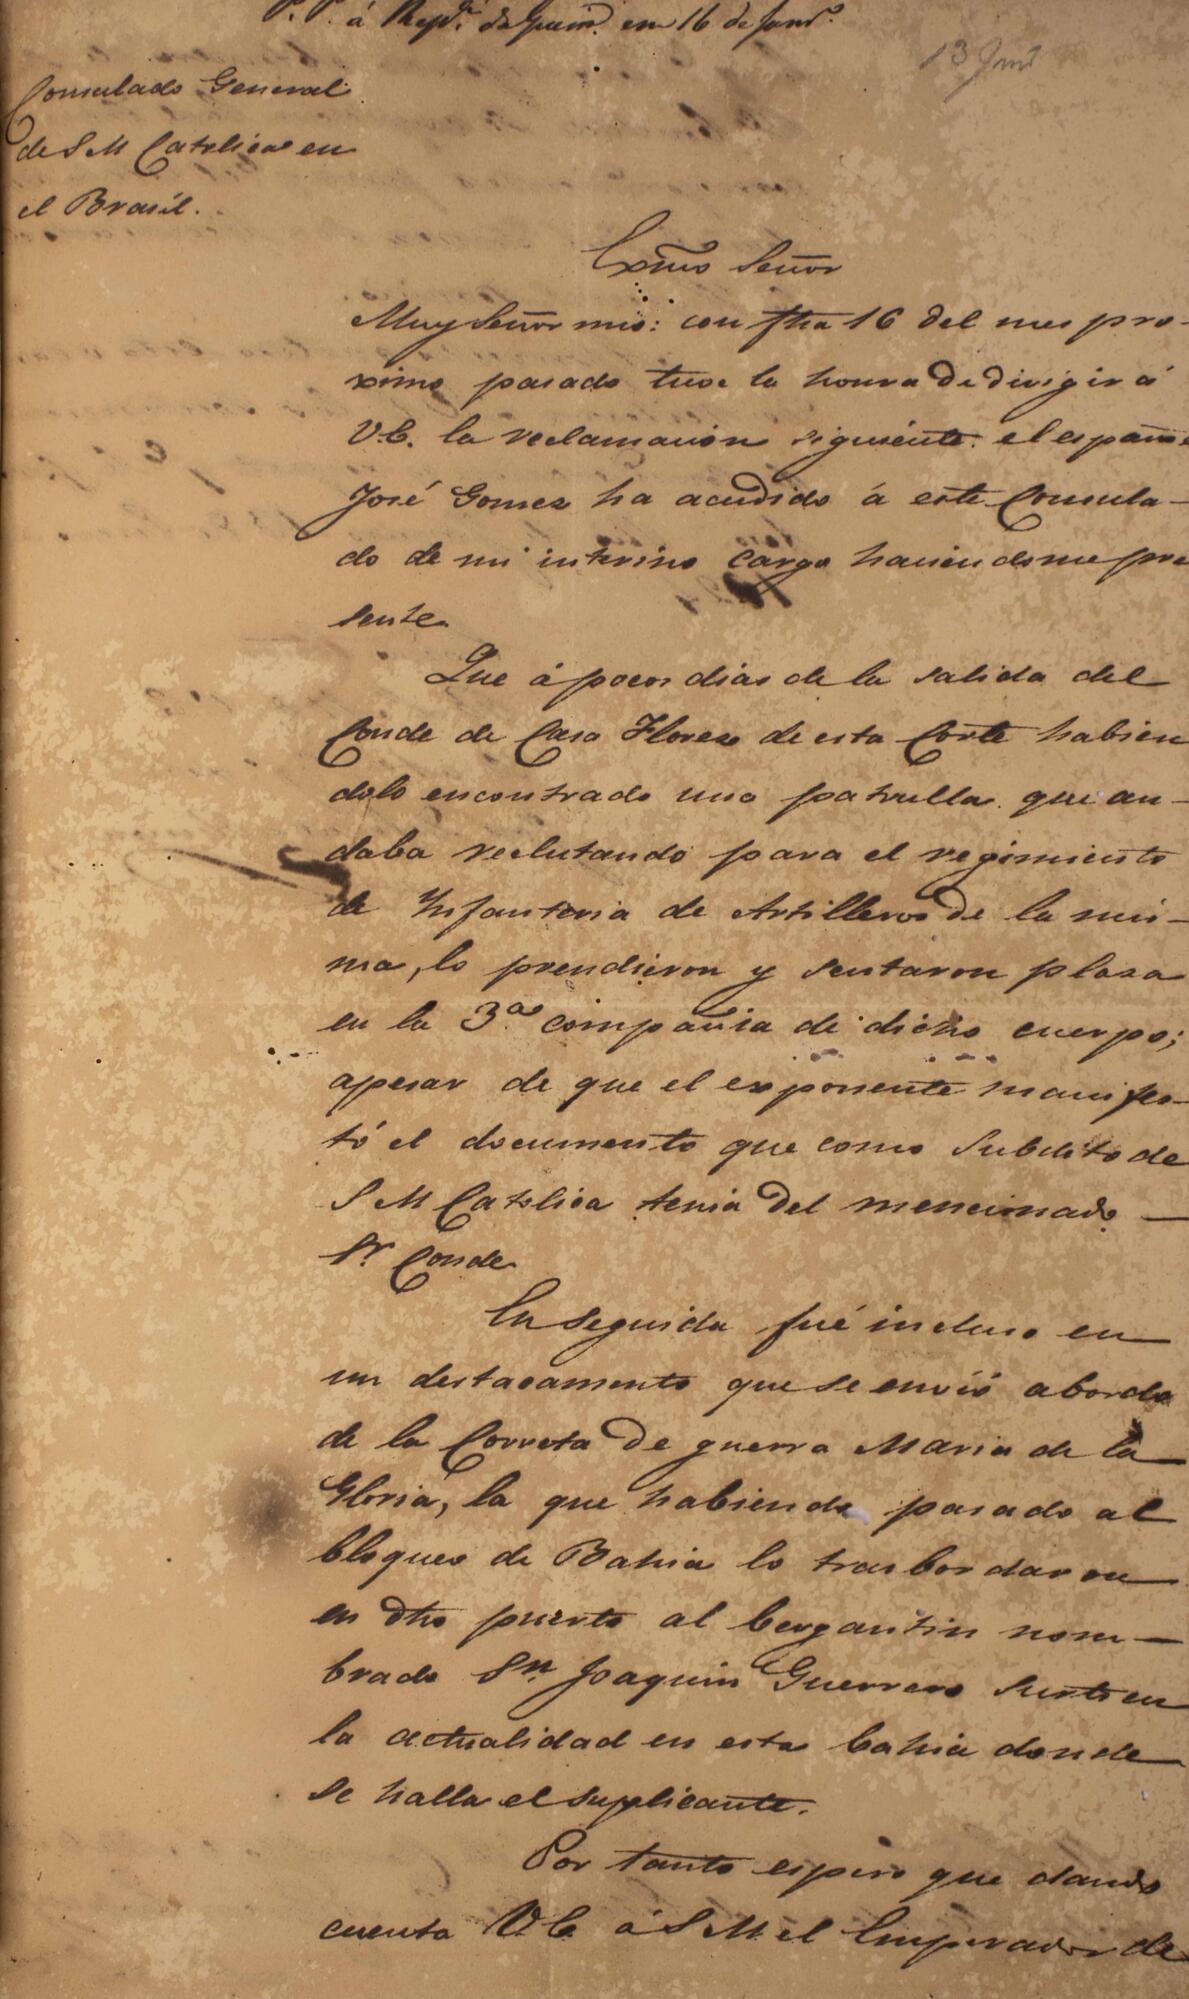 P. P. á Rep.am da Guerra em 16 de Janr.o
13 Janr
Consulado General
de S M Catolica en
el Brasil.
Exmo Señor
Muy Señor mio: con fha 16 del mes pro-
ximo pasado tuve la honra de dirigir á
V.E. la reclamacion siguiente. el español
José Gomez ha acudido á este Consula-
do de mi interino cargo haciendome pre
sente.
Que á pocos dias de la salida del
Conde de Casa Florez de esta Corte habien
dolo encontrado una patrulla que an-
daba reclutando para el regimiento
de Infanteria de Artilleros de la mis-
ma, lo prendieron y sentaron plaza
en la 3.a compañia de dicho cuerpo;
apesar de que el exponente manifes-
tó el documento que como subdito de
S M Catolica tenia del mencionado
Sr Conde
En seguida fué incluso en
un destacamento que se envió abordo
de la Correta de guerra Maria de la
Gloria, la que habiendo pasado al
bloqueo de Bahia lo trasbordaron
en dho puerto al bergantin nom-
brado Sn Joaquin Guerrero surto en
la actualidad en esta bahia donde
se halla el suplicante.
Por tanto espero que dando
cuenta V.E. á S M. el Emperador de